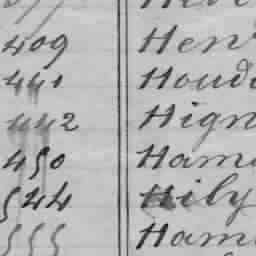 409 Hen
441 Houd
442 Hign
450 Ham
544 Hily
555 Ham